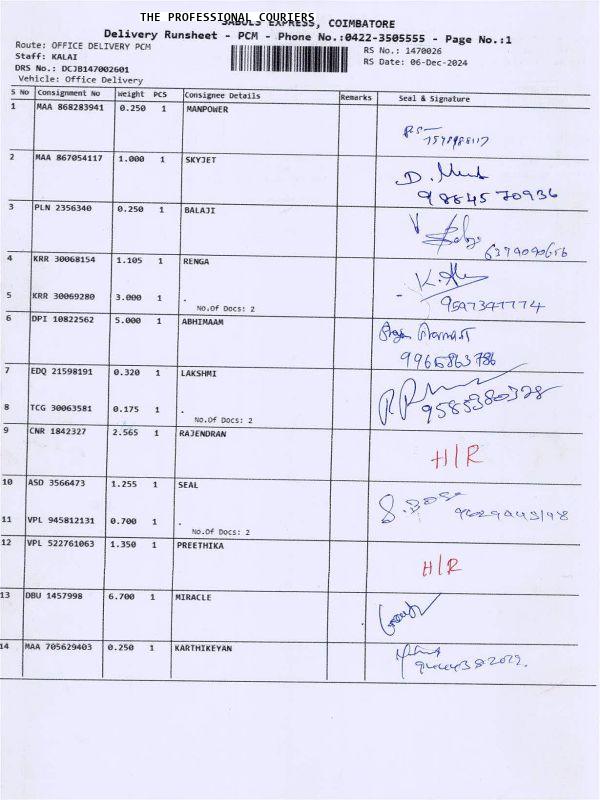 THE PROFESSIONAL COURIERS
EXPRESS, COIMBATORE
Delivery Runsheet - PCM - Phone No.:0422-3505555 - Page No.:1
Route: OFFICE DELIVERY PCM
RS No.: 1470026
Staff: KALAI
RS Date: 06-Dec-2024
DRS No.: DCJB147002601
Vehicle: Office Delivery
S No Consignment No Weight PCS Consignee Details Remarks Seal & Signature
1 MAA 868283941 0.250 1 MANPOWER
2 MAA 867054117 1.000 1 SKYJET
9884570936
3 PLN 2356340 0.250 1 BALAJI
4 KRR 30068154 1.105 1 RENGA
5 KRR 30069280 3.000 1 .
No.Of Docs: 2
6 DPI 10822562 5.000 1 ABHIMAAM
9965863786
7 EDQ 21598191 0.320 1 LAKSHMI
9585380328
8 TCG 30063581 0.175 1 .
No.Of Docs: 2
9 CNR 1842327 2.565 1 RAJENDRAN
H/R
10 ASD 3566473 1.255 1 SEAL
11 VPL 945812131 0.700 1 .
No.Of Docs: 2
12 VPL 522761063 1.350 1 PREETHIKA
H/R
13 DBU 1457998 6.700 1 MIRACLE
14 MAA 705629403 0.250 1 KARTHIKEYAN